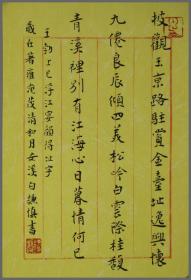 披觀玉京路駐賞金臺址逸興懷
九僊良辰傾四美松吟白雲際桂馥
青溪裡別有江海心日暮情何已
王勃上巳浮江宴韻得址字
歲在著雍茂清和月安溪白謙慎書